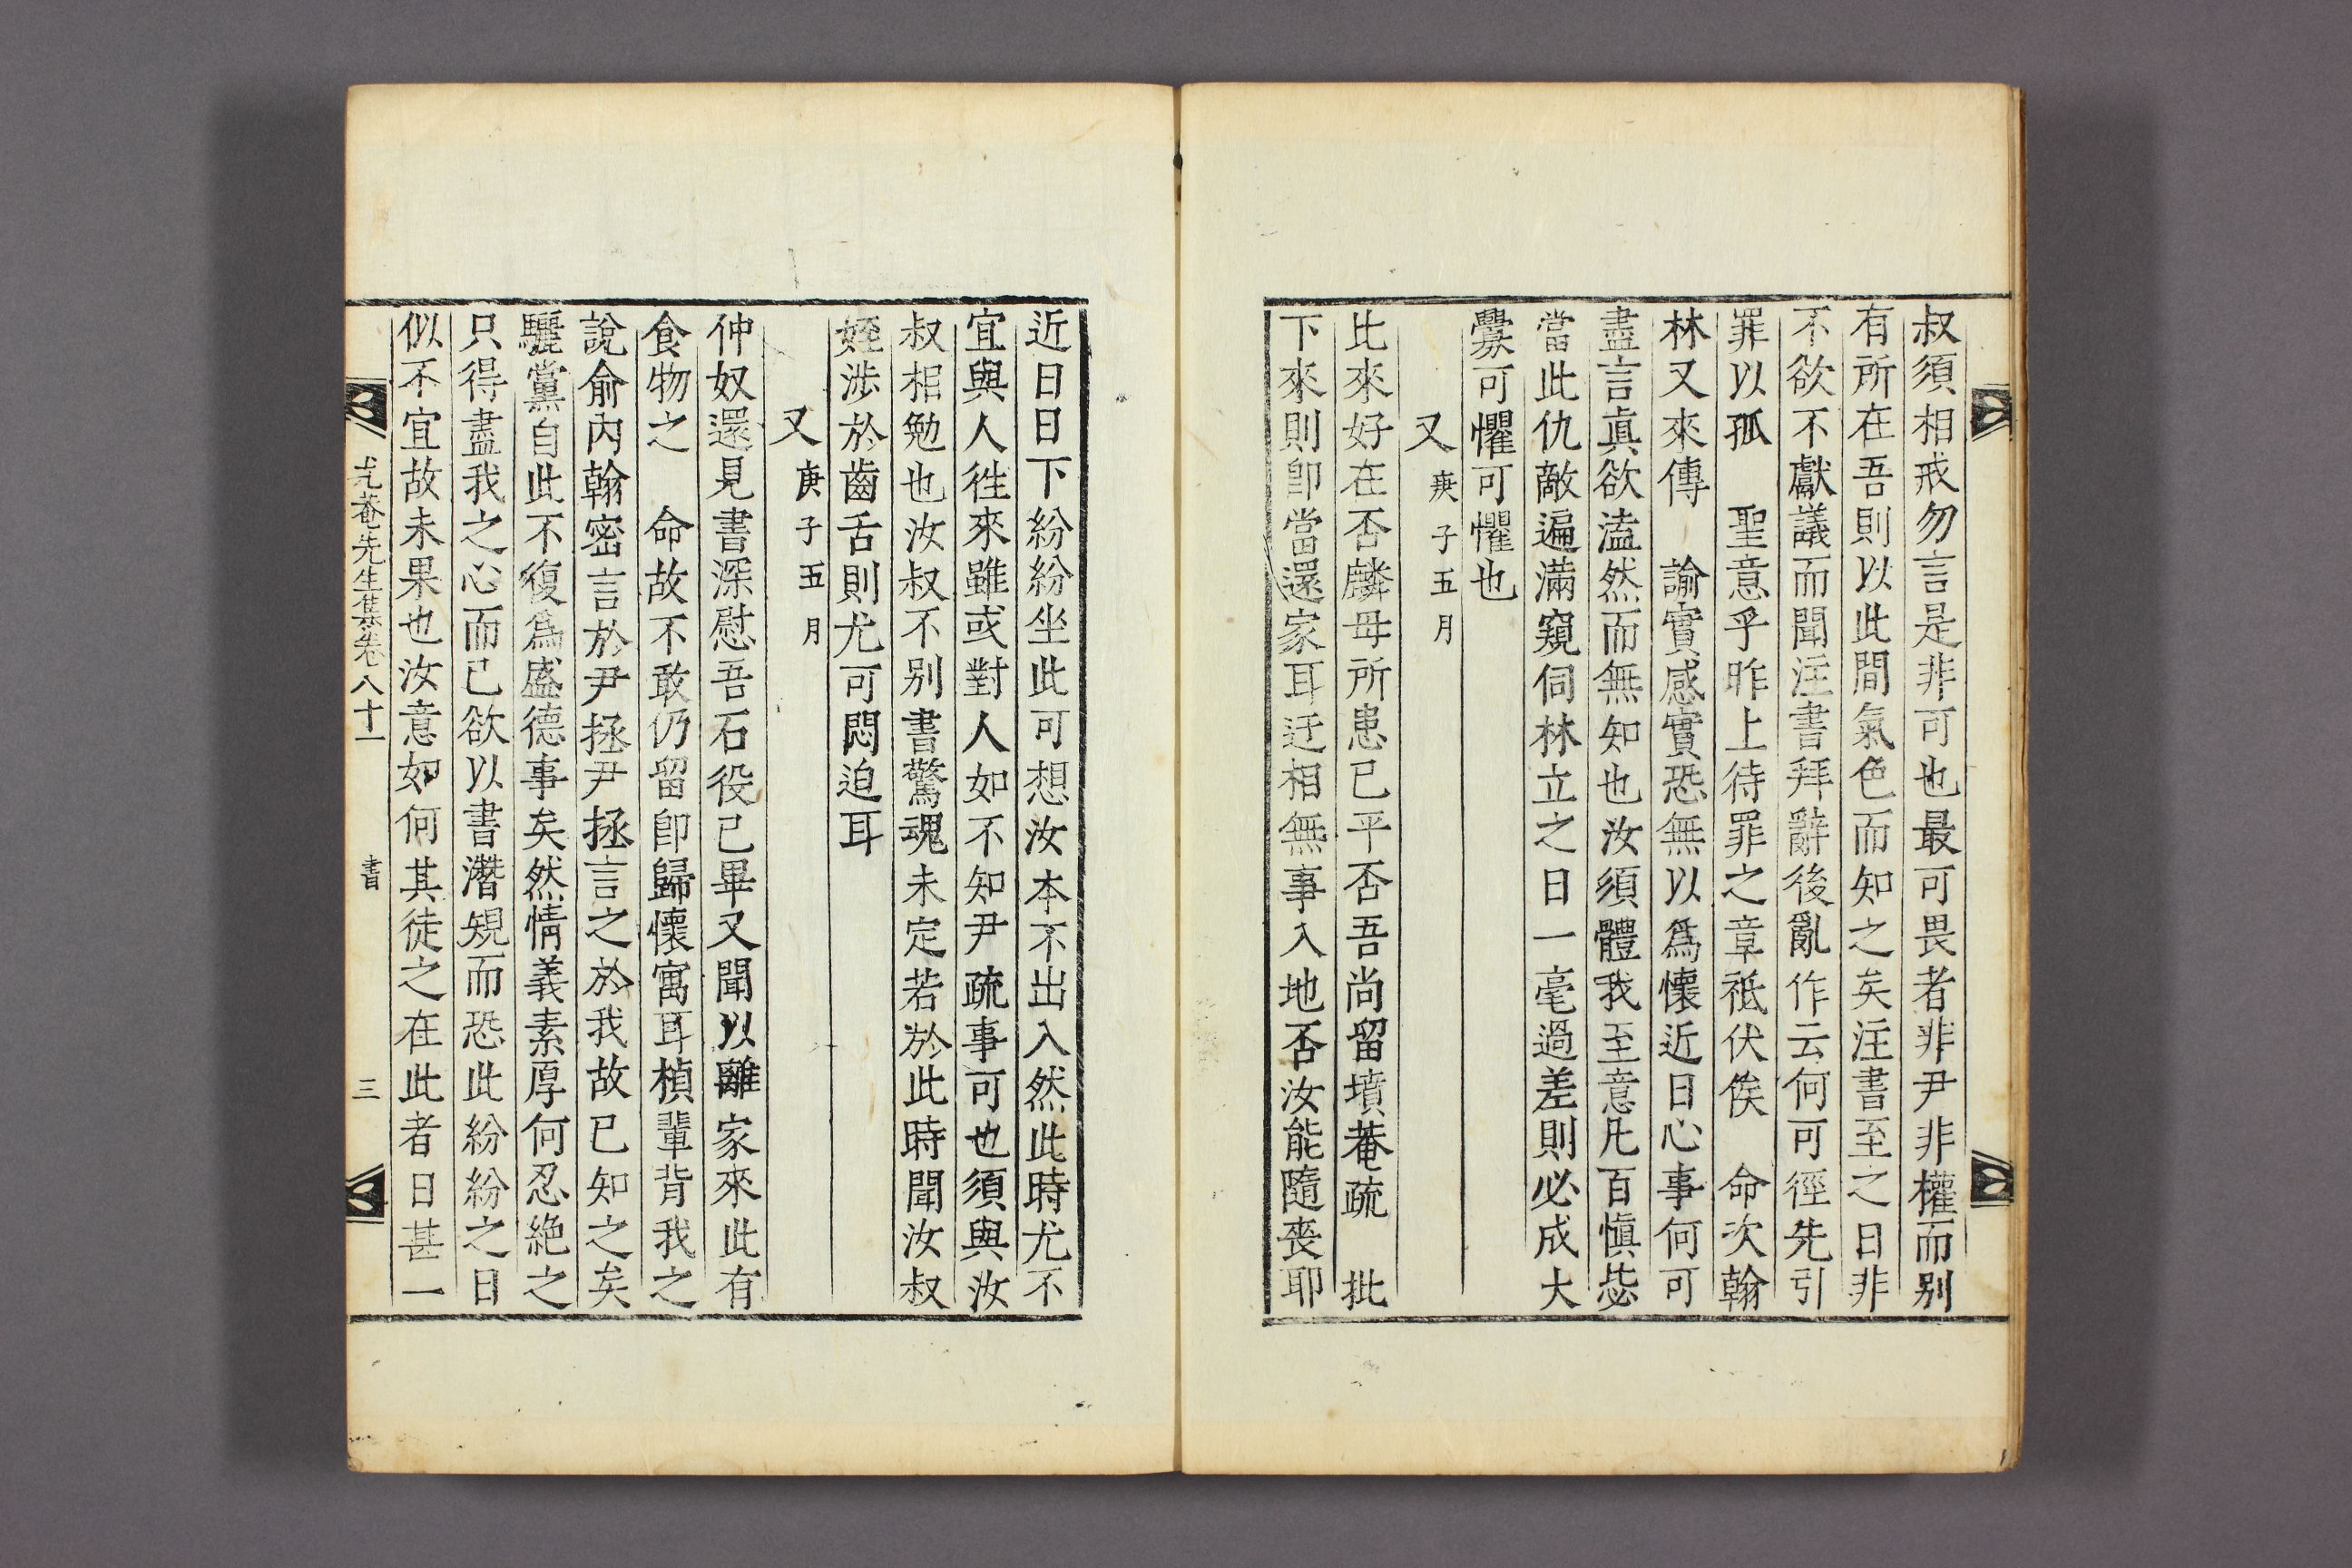 叔須相戒勿言是非可也最可畏者非尹非權而別
有所在吾則以此間氣色而知之矣注書至之日非
不欲不獻議而聞注書拜辭後亂作云何可徑先引
罪以孤　聖意乎昨上待罪之章祗伏俟　命次翰
林又來傳　諭實感實恐無以爲懷近日心事何可
盡言眞欲溘然而無知也汝須體我至意凡百愼毖
當此仇敵遍滿窺伺林立之日一毫過差則必成大
釁可懼可懼也
又庚子五月
比來好在否麟母所患已平否吾尚留墳菴疏　批
下來則卽當還家耳迂相無事入地否汝能隨喪耶
近日日下紛紛坐此可想汝本不出入然此時尤不
宜與人徃來雖或對人如不知尹疏事可也須與汝
叔相勉也汝叔不别書驚魂未定若於此時聞汝叔
姪涉於齒舌則尤可悶迫耳
又庚子五月
仲奴還見書深慰吾石役已畢又聞以離家來此有
食物之　命故不敢仍留卽歸懷寓耳楨輩背我之
說俞內翰密言於尹拯尹拯言之於我故已知之矣
驪黨自此不復爲盛德事矣然情義素厚何忍絶之
只得盡我之心而已欲以書潛規而恐此紛紛之日
似不宜故未果也汝意如何其徒之在此者日甚一
尤菴先生集卷八十一　書　三